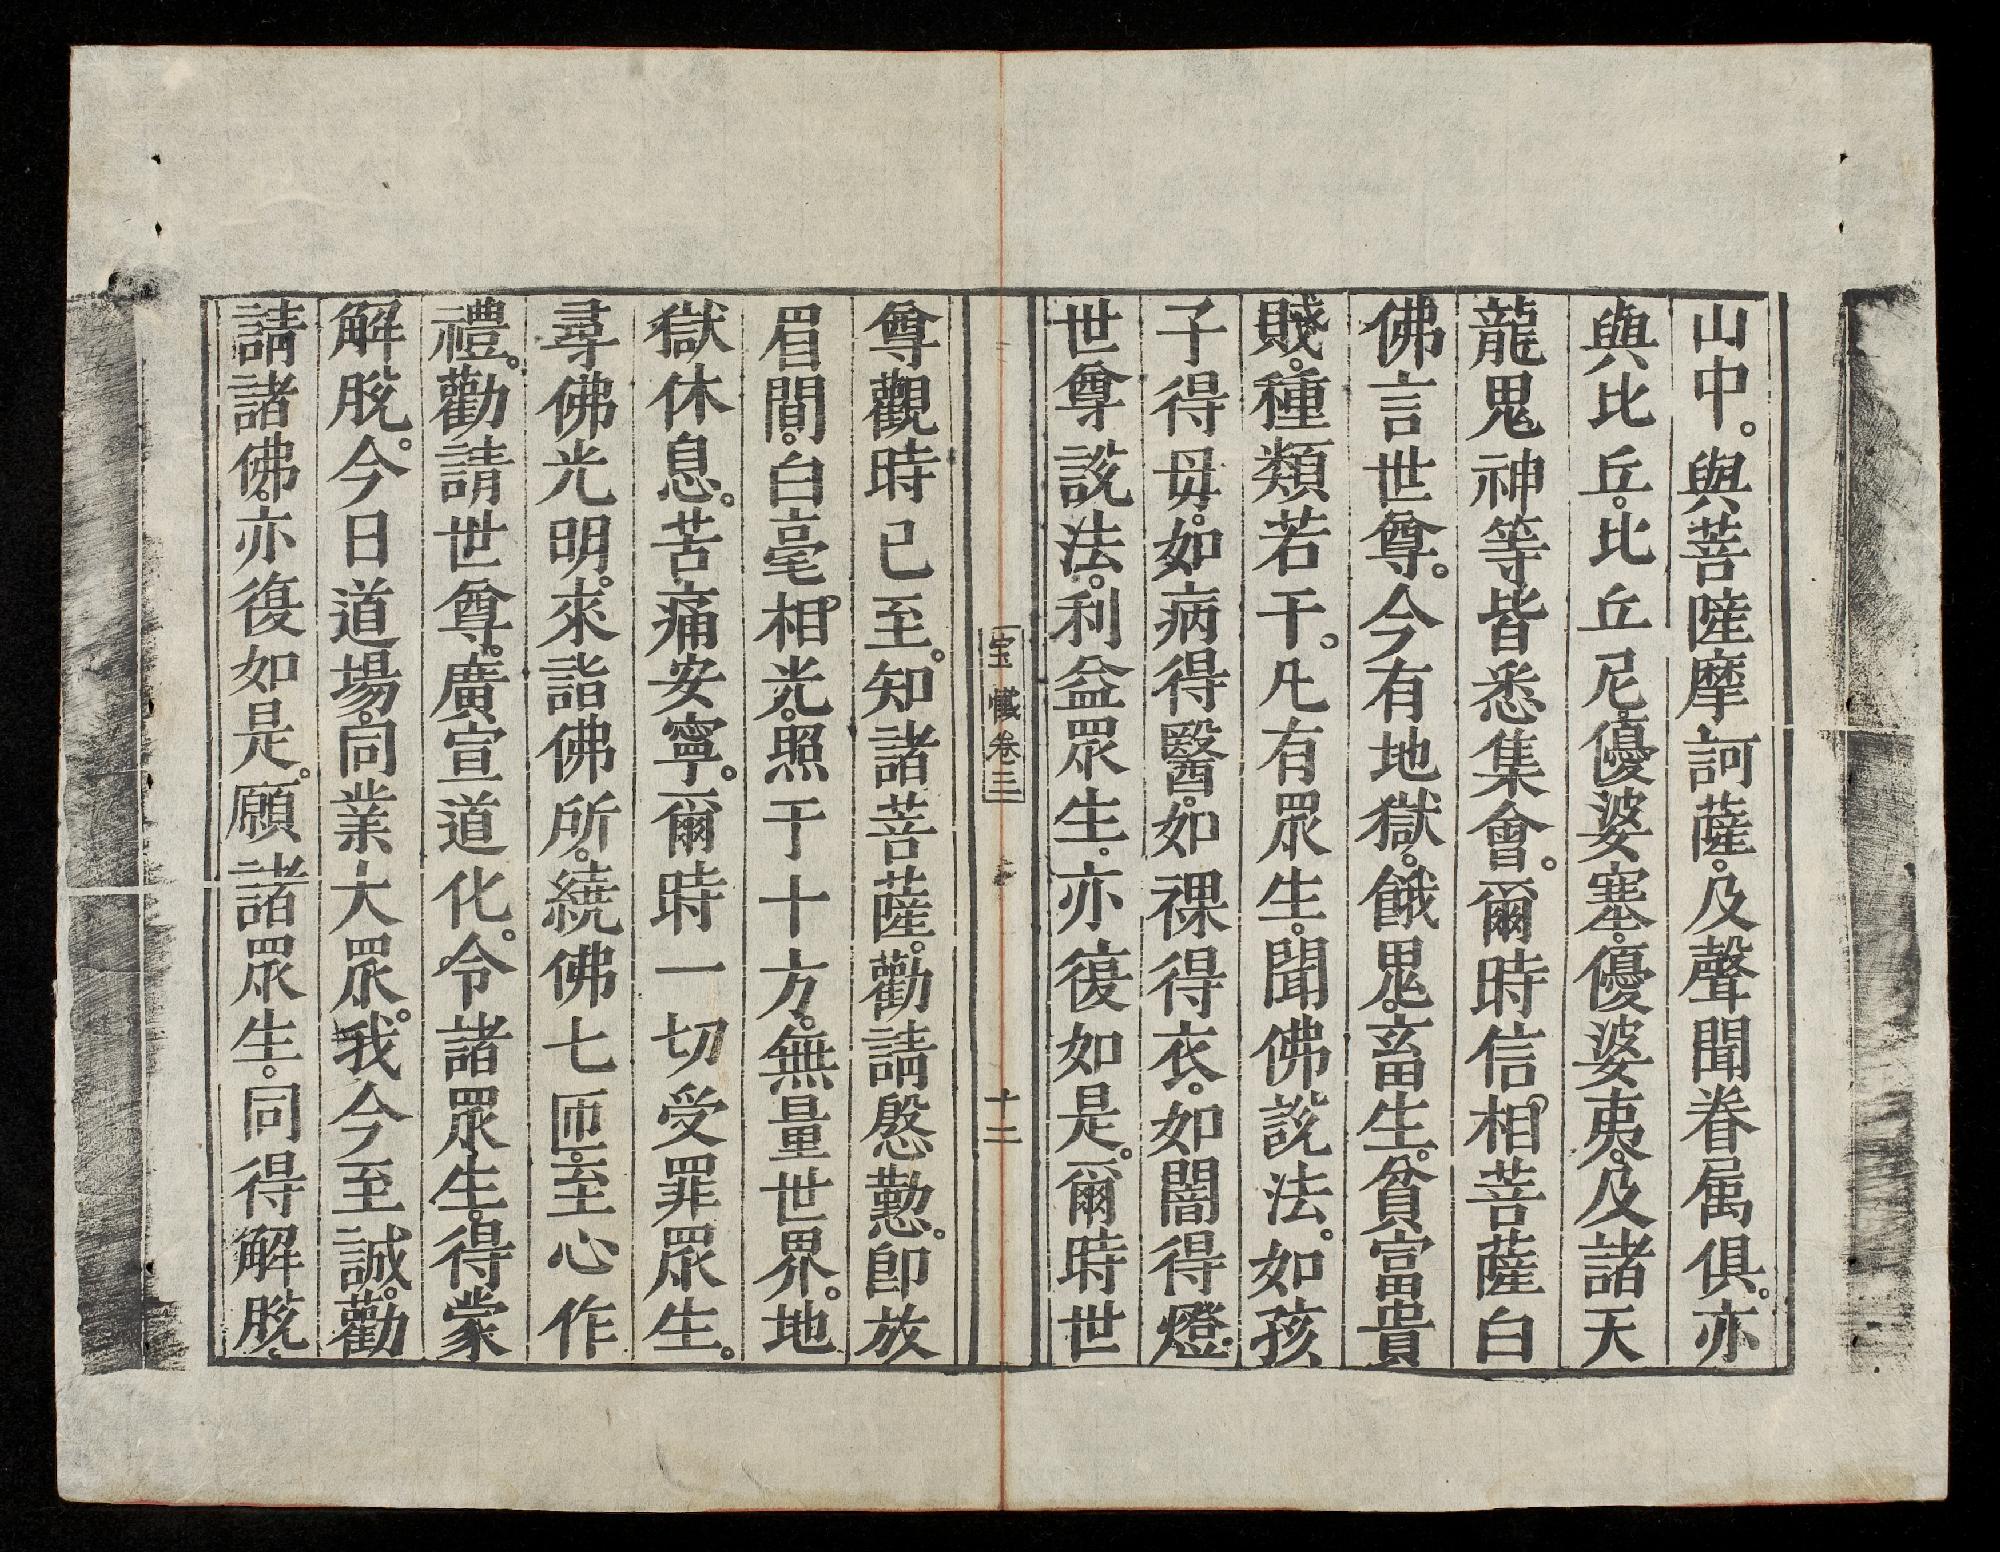 山中。與菩薩摩訶薩。及聲聞眷属俱。亦
與比丘。比丘尼。優婆塞。優婆夷。及諸天
龍鬼神等皆悉集會。爾時信相菩薩白
佛言世尊。今有地獄。餓鬼。畜生。貧富貴
賤。種類若干。凡有眾生。聞佛說法。如孩
子得母。如病得醫。如裸得衣。如闇得燈。
世尊說法。利益眾生。亦復如是。爾時世
宝懺卷三
十二
尊觀時已至。知諸菩薩。勸請慇懃。即放
眉間。白毫相光。照于十方。無量世界。地
獄休息。苦痛安寧。爾時一切受罪眾生。
尋佛光明。來詣佛所。繞佛七匝。至心作
禮。勸請世尊。廣宣道化。令諸眾生。得蒙
解脫。今日道場。同業大眾。我今至誠。勸
請諸佛。亦復如是。願諸眾生。同得解脫。